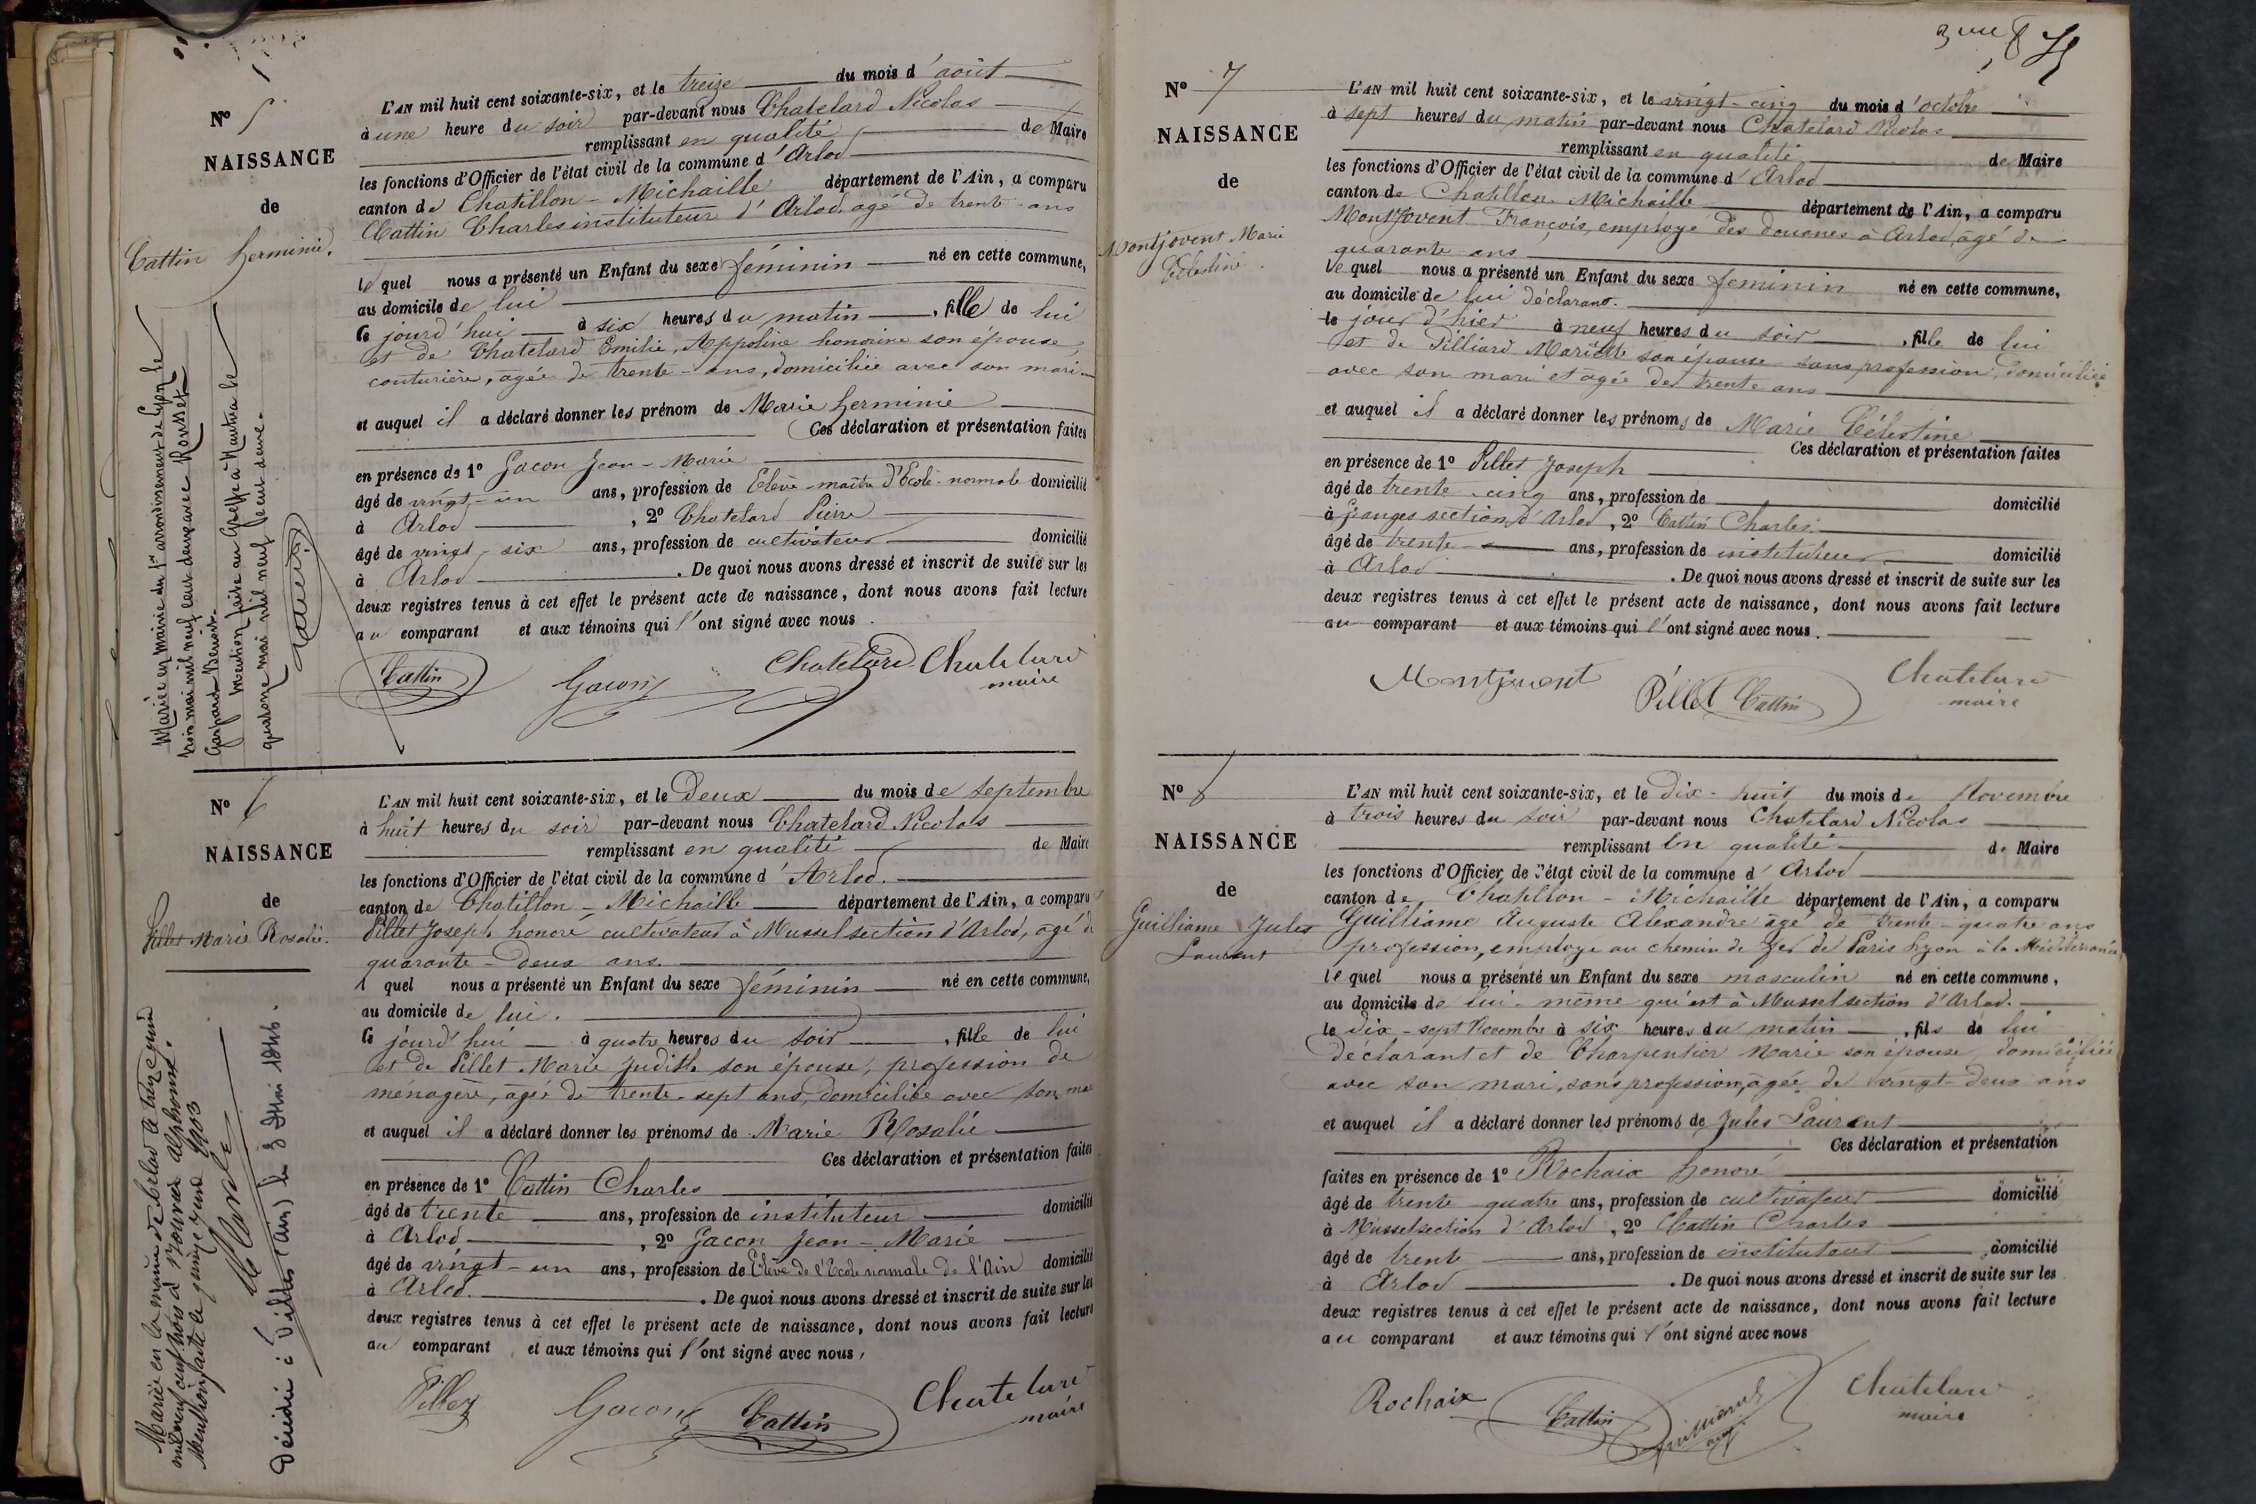 Nº 5
NAISSANCE
de
Cattin herminie.
L'AN mil huit cent soixante-six, et le treize du mois d'août
à une heure du soir par-devant nous Chatelard Nicolas
remplissant en qualité de Maire
les fonctions d'Officier de l'état civil de la commune d'Arlod
canton de Chatillon-Michaille département de l'Ain, a comparu
Cattin Charles instituteur d'Arlod, agé de trente ans
lequel nous a présenté un Enfant du sexe féminin né en cette commune,
au domicile de lui
ce jourd'hui à six heures du matin, fille de lui
et de Chatelard Emilie, Appoline honorine son épouse,
couturière, agée de trente-ans, domiciliée avec son mari
et auquel il a déclaré donner les prénom de Marie herminie
Ces déclaration et présentation faites
en présence de 1º Gacon Jean-Marie
âgé de vingt-un ans, profession de Elève-maître d'Ecole normale domicilié
à Arlod, 2º Chatelard Pierre
âgé de vingt-six ans, profession de cultivateur domicilié
à Arlod. De quoi nous avons dressé et inscrit de suite sur les
deux registres tenus à cet effet le présent acte de naissance, dont nous avons fait lecture
au comparant et aux témoins qui l'ont signé avec nous.
Cattin Gacon Chatelard Chatelard
maire
Mariée en mairie du 1er arrondissement de Lyon le
trois mai mil neuf cent deux avec Rousset
Gaspard Benoit.
Mention faite au Greffe à Nantua le
quatorze mai mil neuf cent deux.
Nº 6
NAISSANCE
de
Pillet Marie Rosalie.
L'AN mil huit cent soixante-six, et le Deux du mois de septembre
à huit heures du soir par-devant nous Chatelard Nicolas
remplissant en qualité de Maire
les fonctions d'Officier de l'état civil de la commune d'Arlod.
canton de Chatillon-Michaille département de l'Ain, a comparu
Pillet Joseph honoré cultivateur à Mussel section d'Arlod, agé de
quarante-deux ans.
lequel nous a présenté un Enfant du sexe féminin né en cette commune,
au domicile de lui.
ce jourd'hui à quatre heures du soir, fille de lui
et de Pillet Marie Judith son épouse, profession de
ménagère, agée de trente-sept ans, domiciliée avec son mari
et auquel il a déclaré donner les prénoms de Marie Rosalie
Ces déclaration et présentation faites
en présence de 1º Cattin Charles
âgé de trente ans, profession de instituteur domicilié
à Arlod, 2º Gacon Jean-Marie
âgé de vingt-un ans, profession de Elève de l'Ecole normale de l'Ain domicilié
à Arlod. De quoi nous avons dressé et inscrit de suite sur les
deux registres tenus à cet effet le présent acte de naissance, dont nous avons fait lecture
au comparant et aux témoins qui l'ont signé avec nous,
Pillet Gacon Cattin Chatelard
maire
Mariée en la mairie d'Arlod le treize juin
mil neuf cent trois à Alphonse.
Mention faite le quinze juin 1903
Décédée à Villes (Ain) le 8 Mai 1946.
Nº 7
NAISSANCE
de
Montjovent Marie
Célestine.
L'AN mil huit cent soixante-six, et le vingt-cinq du mois d'octobre
à sept heures du matin par-devant nous Chatelard Nicolas
remplissant en qualité de Maire
les fonctions d'Officier de l'état civil de la commune d'Arlod
canton de Chatillon-Michaille département de l'Ain, a comparu
Montjovent François, employé des douanes à Arlod, âgé de
quarante ans
lequel nous a présenté un Enfant du sexe feminin né en cette commune,
au domicile de lui déclarant.
le jour d'hier à neuf heures du soir, fille de lui
et de Pilliard Mariette son épouse sans profession, domiciliée
avec son mari et agée de trente ans
et auquel il a déclaré donner les prénoms de Marie Célestine
Ces déclaration et présentation faites
en présence de 1º Pillet Joseph
âgé de trente-cinq ans, profession de domicilié
à Granges section d'Arlod, 2º Cattin Charles.
âgé de trente ans, profession de instituteur domicilié
à Arlod. De quoi nous avons dressé et inscrit de suite sur les
deux registres tenus à cet effet le présent acte de naissance, dont nous avons fait lecture
au comparant et aux témoins qui l'ont signé avec nous.
Montjovent Pillet Cattin Chatelard
maire
Nº 8
NAISSANCE
de
Guilliame Jules
Laurent
L'AN mil huit cent soixante-six, et le dix-huit du mois de Novembre
à trois heures du soir par-devant nous Chatelard Nicolas
remplissant En qualité de Maire
les fonctions d'Officier de l'état civil de la commune d'Arlod
canton de Chatillon-Michaille département de l'Ain, a comparu
Guilliame Auguste Alexandre âgé de trente-quatre ans
profession, employé au chemin de fer de Paris Lyon à la Méditerranée
lequel nous a présenté un Enfant du sexe masculin né en cette commune,
au domicile de lui-même qui est à Mussel section d'Arlod.
le dix-sept Novembre à six heures du matin, fils de lui
déclarant et de Charpentier Marie son épouse, domiciliée
avec son mari, sans profession, agée de vingt-deux ans
et auquel il a déclaré donner les prénoms de Jules Laurent
Ces déclaration et présentation
faites en présence de 1º Rochaix honoré
âgé de trente quatre ans, profession de cultivateur domicilié
à Mussel section d'Arlod, 2º Cattin Charles
âgé de trente ans, profession de instituteur domicilié
à Arlod. De quoi nous avons dressé et inscrit de suite sur les
deux registres tenus à cet effet le présent acte de naissance, dont nous avons fait lecture
au comparant et aux témoins qui l'ont signé avec nous
Rochaix Cattin Chatelard
maire